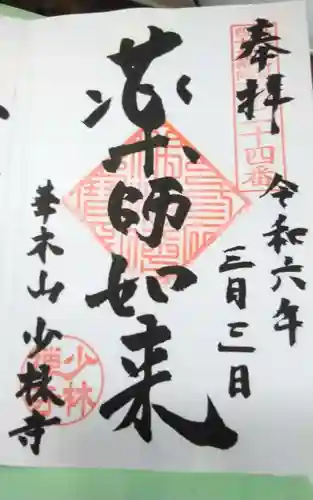 奉拝
二十四番
令和六年
三月二一日
薬師如来
華木山少林寺
少林